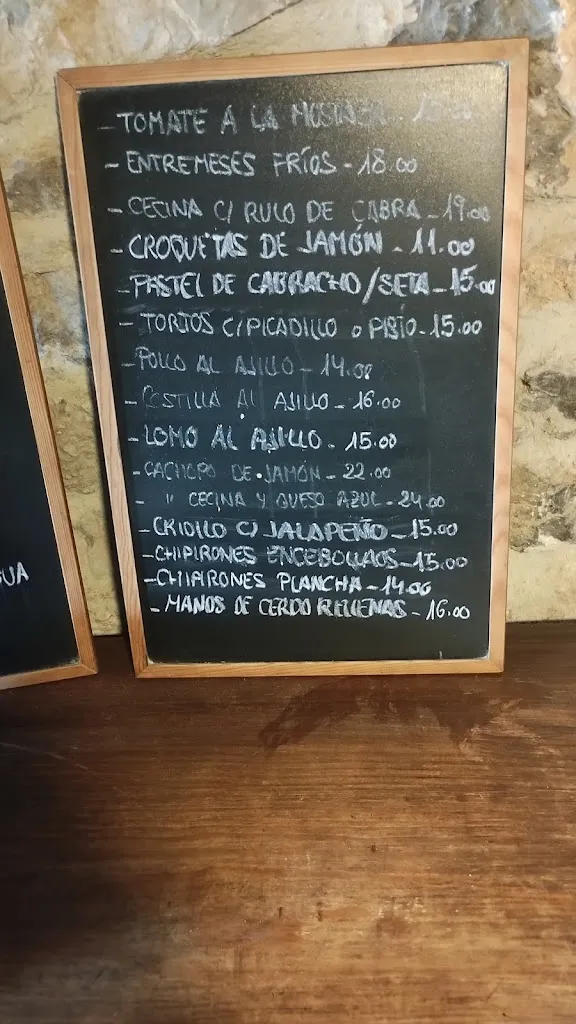 - TOMATE A LA MOSTAZA -
- ENTREMESES FRÍOS - 18.00
- CECINA C/ RULO DE CABRA - 19.00
- CROQUETAS DE JAMÓN - 11.00
- PASTEL DE CABRACHO/SETA - 15.00
- TORTOS C/PICADILLO o PISTO - 15.00
- POLLO AL AJILLO - 14.00
- COSTILLA AL AJILLO - 16.00
- LOMO AL AJILLO - 15.00
- CACHOPO DE JAMÓN - 22.00
- " CECINA Y QUESO AZUL - 24.00
- CRIOLLO C/ JALAPEÑO - 15.00
- CHIPIRONES ENCEBOLLAOS - 15.00
- CHIPIRONES PLANCHA - 14.00
- MANOS DE CERDO RELLENAS - 16.00